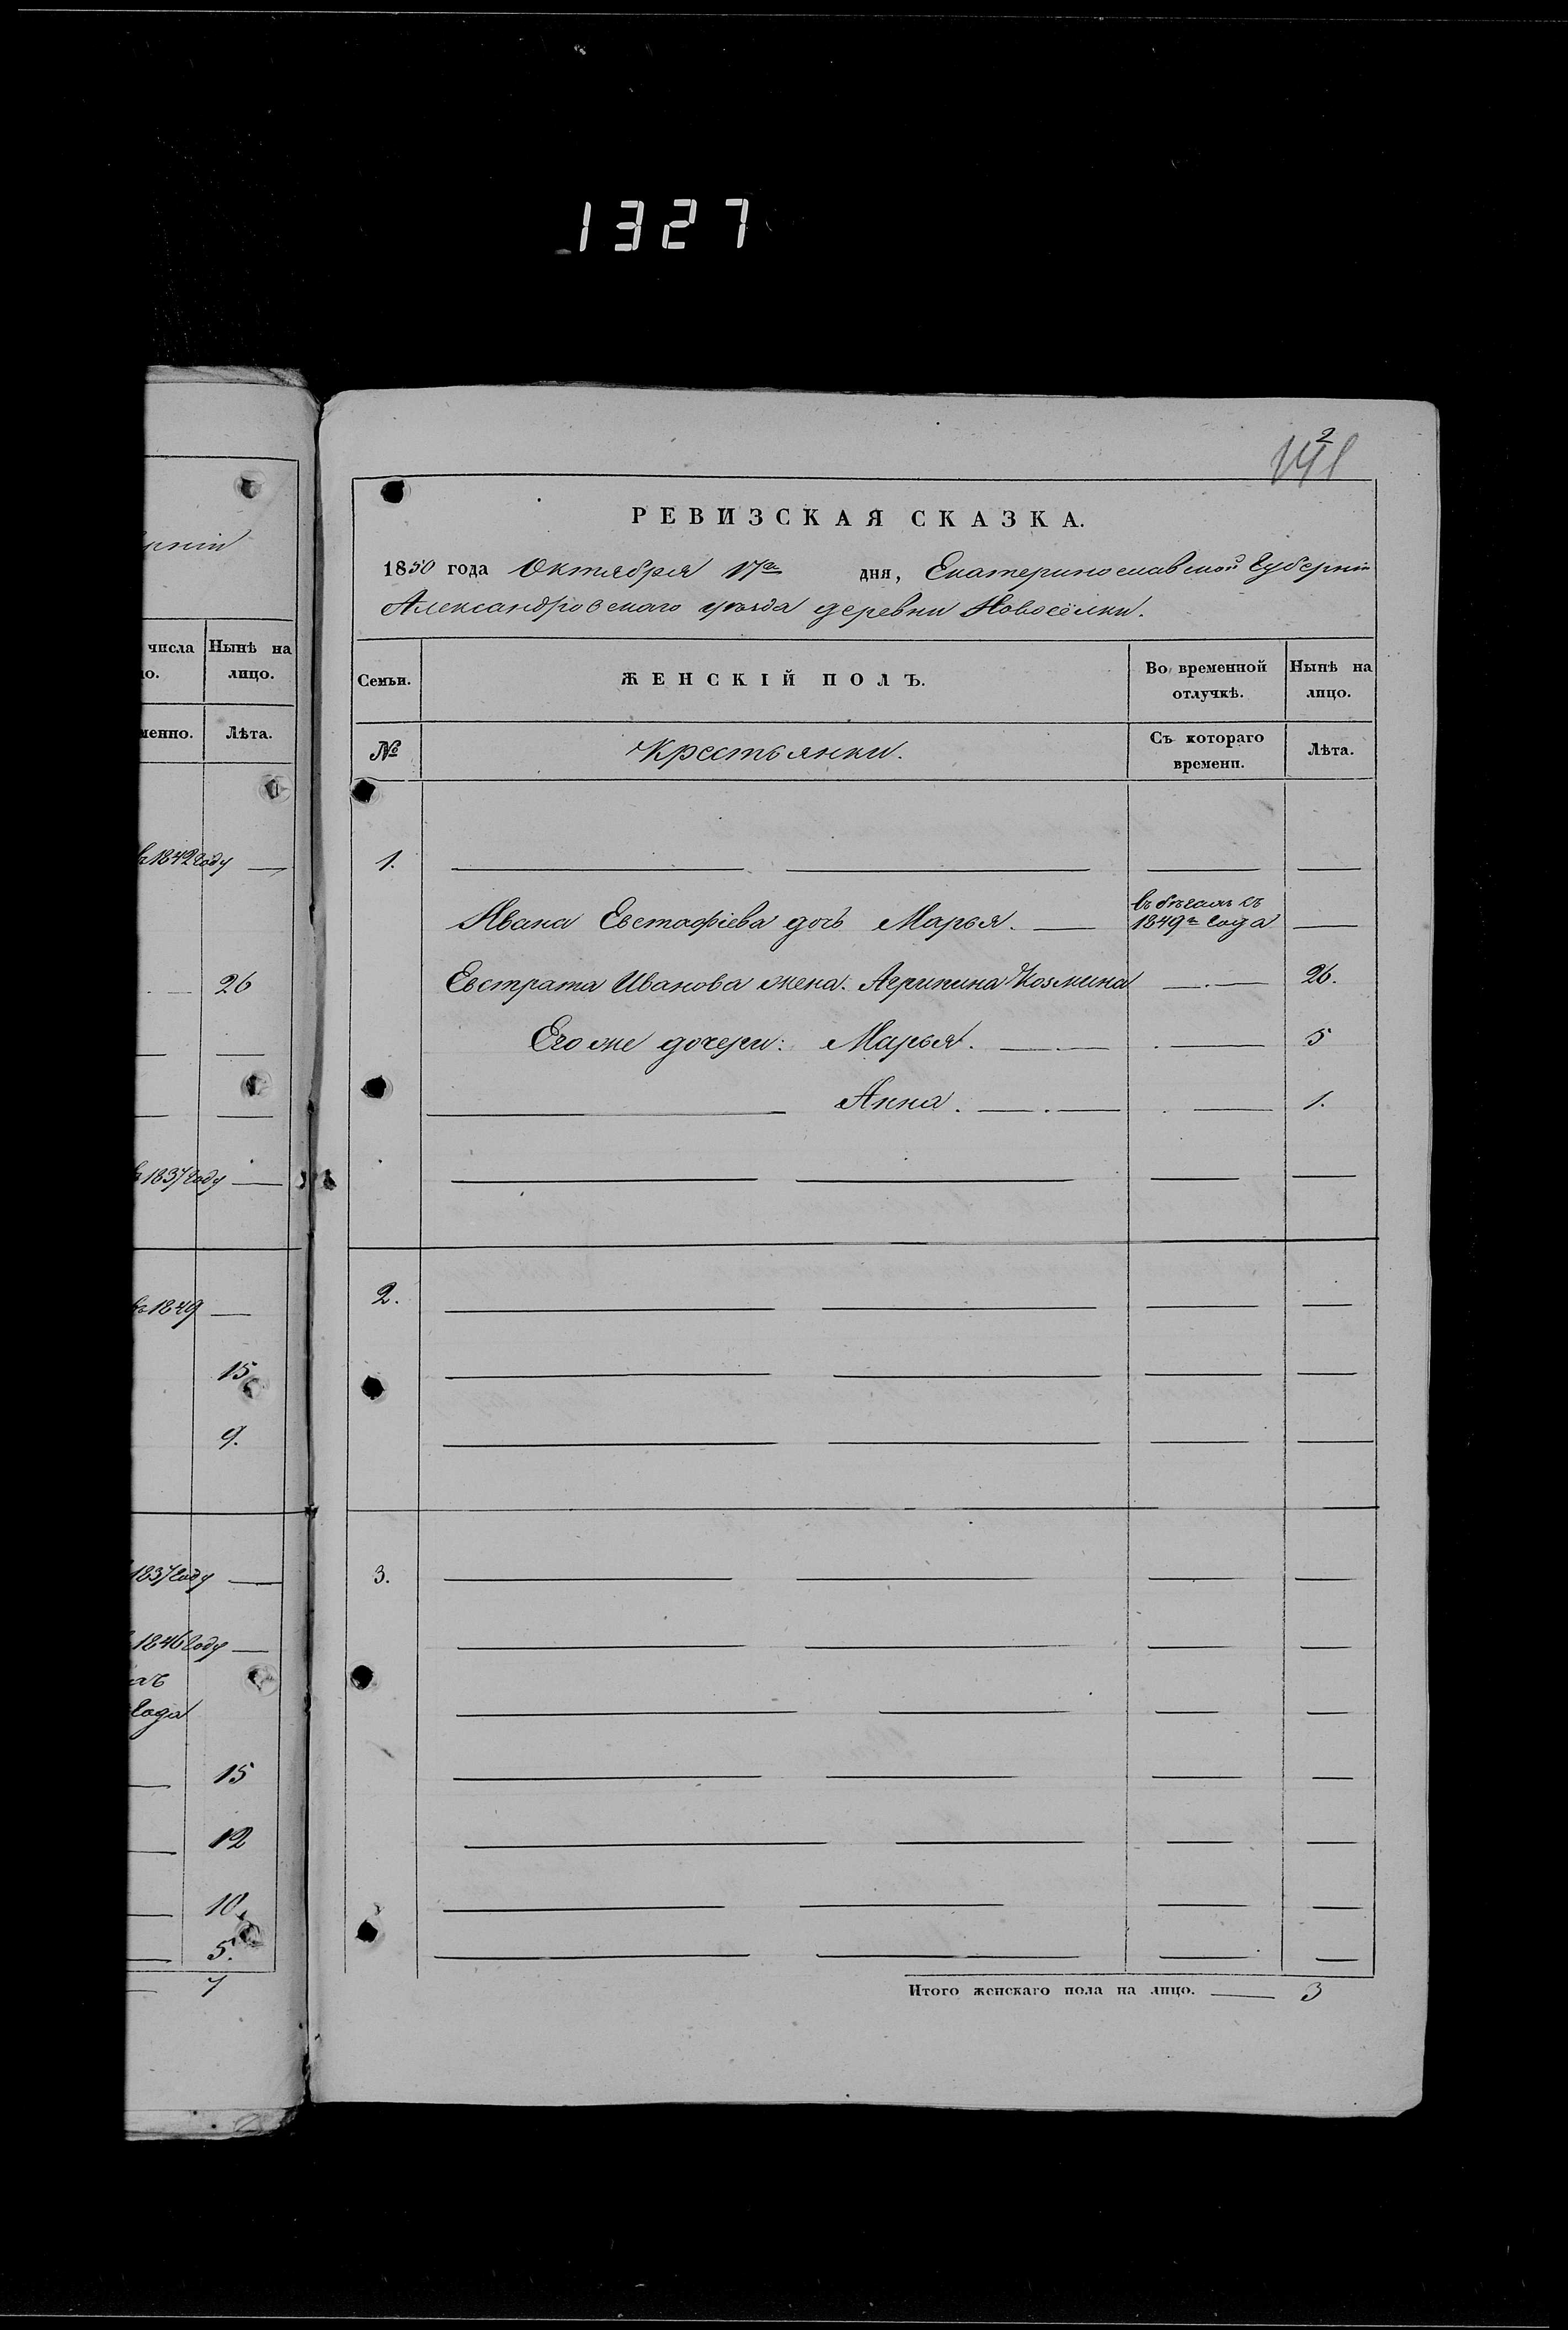 1327
2
141
рніи
числа Нынѣ на
ло. лицо.
менно. Лѣта.
въ 1842 году —
26
1837 году —
1849 —
15
9.
1837 году —
1846 году —
года
15
12
10
5.
7
РЕВИЗСКАЯ СКАЗКА.
1850 года Октября 17го дня, Екатеринославской Губерніи
Александровскаго уѣзда деревни Новосёлки.
Семьи. ЖЕНСКІЙ ПОЛЪ. Во временной отлучкѣ. Нынѣ на лицо.
№ Крестьянки. Съ котораго времени. Лѣта.
1.
Ивана Евстафіева дочь Марья. — въ бѣгахъ съ 1849го года —
Евстрата Иванова жена: Агрипина Козмина — 26.
Его же дочери: Марья. — 5
Анна. — 1.
2.
3.
Итого женскаго пола на лицо. — 3